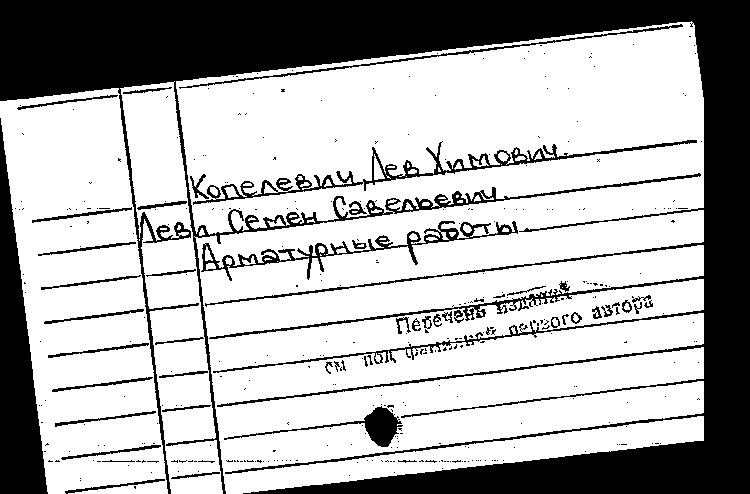 Копелевич, Лев Химович.
Леви, Семен Савельевич.
Арматурные работы.
Перечень изданий
см под фамилией первого автора